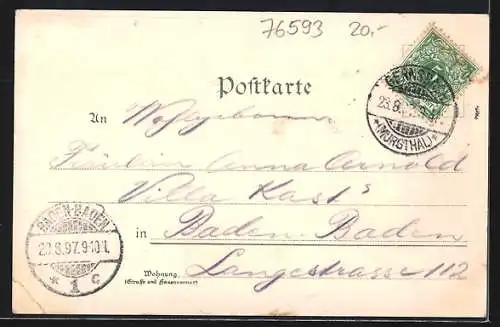 76593 20,-
Postkarte
GERNSB
23.8.
(MURGTHAL)
An Wohlgeboren
Fräulein Anna Arnold
Villa Kast
BADEN-BADEN
23.8.97.9-10V.
* 1 c
in Baden-Baden
Wohnung Langestrasse 112
(Straße und Hausnummer)